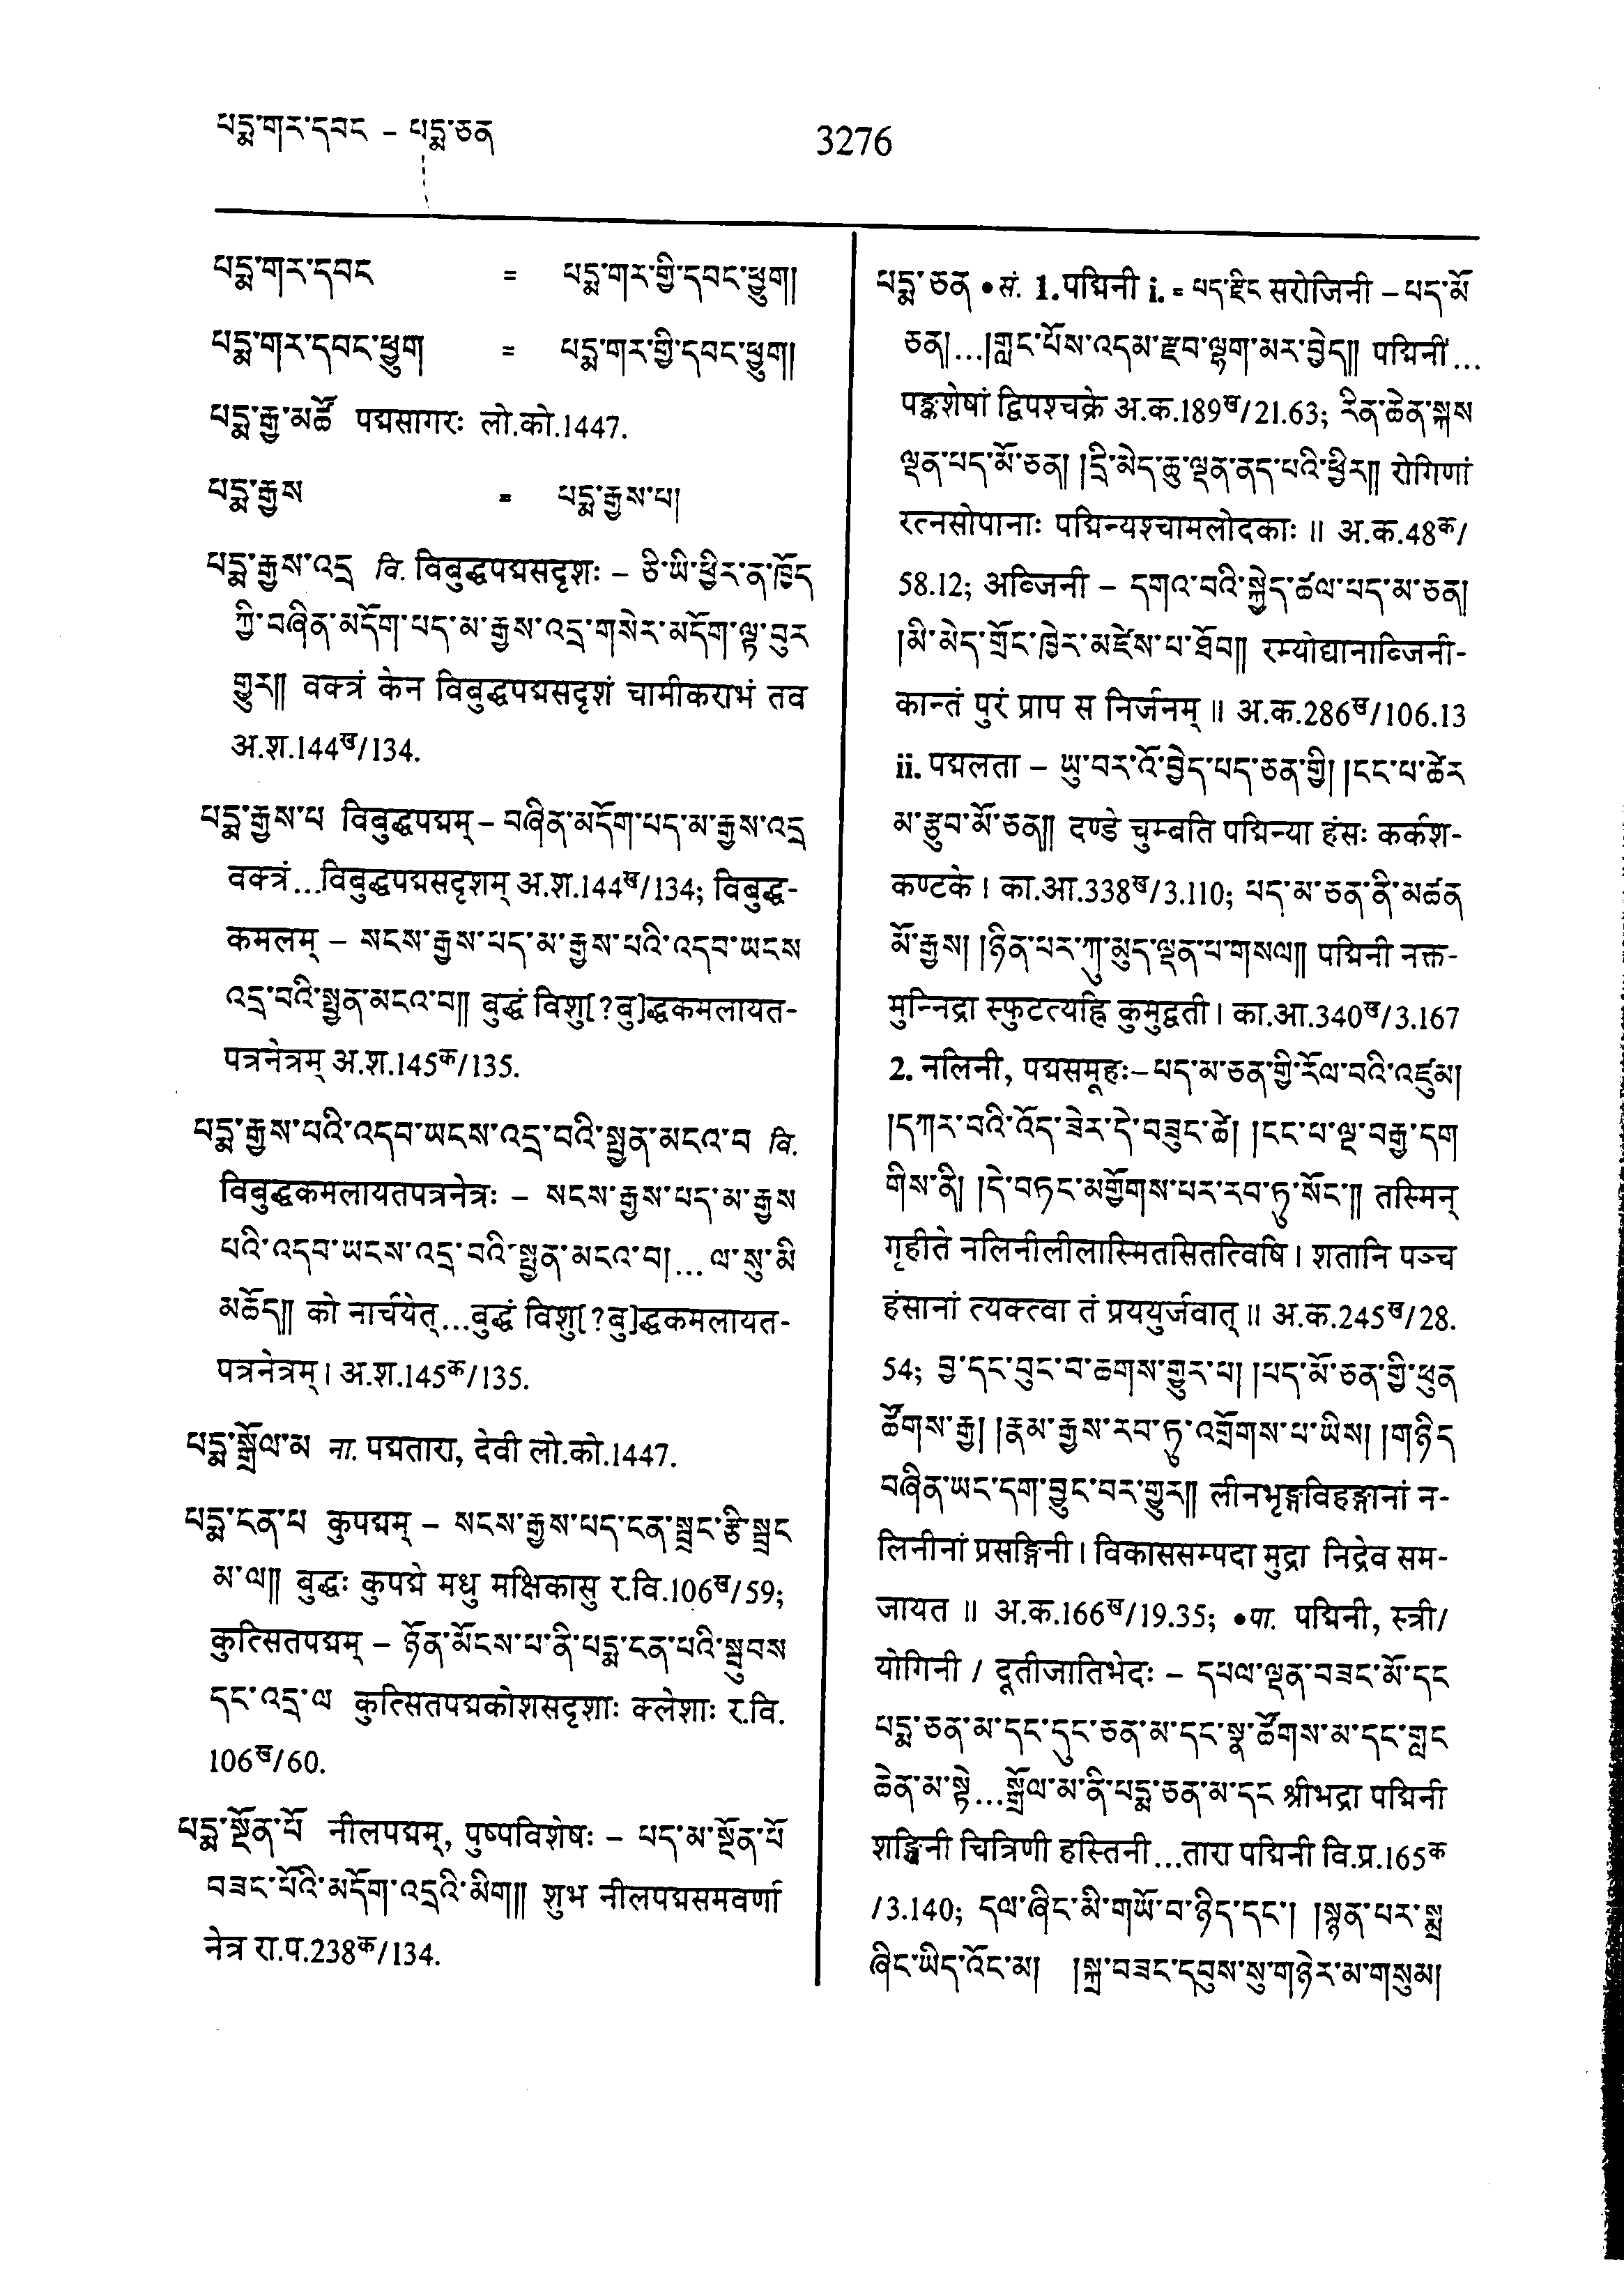 པདྨ་གར་དབང – པདྨ་ཅན
3276
པདྨ་གར་དབང = པདྨ་གར་གྱི་དབང་ཕྱུག།
པདྨ་གར་དབང་ཕྱུག = པདྨ་གར་གྱི་དབང་ཕྱུག།
པདྨ་རྒྱ་མཚོ पद्मसागरः लो.को.1447.
པདྨ་རྒྱས = པདྨ་རྒྱས་པ།
པདྨ་རྒྱས་འདྲ वि. विबुद्धपद्मसदृशः – ཅི་ཡི་ཕྱིར་ན་ཁྱོད
ཀྱི་བཞིན་མདོག་པད་མ་རྒྱས་འདྲ་གསེར་མདོག་ལྟ་བུར
གྱུར།། वक्त्रं केन विबुद्धपद्मसदृशं चामीकराभं तव
अ.श.144ख/134.
པདྨ་རྒྱས་པ विबुद्धपद्मम् – བཞིན་མདོག་པད་མ་རྒྱས་འདྲ
वक्त्रं...विबुद्धपद्मसदृशम् अ.श.144ख/134; विबुद्ध-
कमलम् – སངས་རྒྱས་པད་མ་རྒྱས་པའི་འདབ་ཡངས
འདྲ་བའི་སྤྱན་མངའ་བ།། बुद्धं विशु[?बु]द्धकमलायत-
पत्रनेत्रम् अ.श.145क/135.
པདྨ་རྒྱས་པའི་འདབ་ཡངས་འདྲ་བའི་སྤྱན་མངའ་བ वि.
विबुद्धकमलायतपत्रनेत्रः – སངས་རྒྱས་པད་མ་རྒྱས
པའི་འདབ་ཡངས་འདྲ་བའི་སྤྱན་མངའ་བ།... ལ་སུ་མི
མཆོད།། को नार्चयेत्...बुद्धं विशु[?बु]द्धकमलायत-
पत्रनेत्रम्। अ.श.145क/135.
པདྨ་སྒྲོལ་མ ना. पद्मतारा, देवी लो.को.1447.
པདྨ་ངན་པ कुपद्मम् – སངས་རྒྱས་པད་ངན་སྦྲང་རྩི་སྦྲང
མ་ལ།། बुद्धः कुपद्मे मधु मक्षिकासु र.वि.106ख/59;
कुत्सितपद्मम् – ཉོན་མོངས་པ་ནི་པདྨ་ངན་པའི་སྦུབས
དང་འདྲ་ལ कुत्सितपद्मकोशसदृशाः क्लेशाः र.वि.
106ख/60.
པདྨ་སྔོན་པོ नीलपद्मम्, पुष्पविशेषः – པད་མ་སྔོན་པོ
བཟང་པོའི་མདོག་འདྲའི་མིག།། शुभ नीलपद्मसमवर्णा
नेत्र रा.प.238क/134.
པདྨ་ཅན •सं. 1.पद्मिनी i. = པད་རྫིང सरोजिनी – པད་མོ
ཅན།...།གླང་པོས་འདམ་རྫབ་ལྷག་མར་བྱེད།། पद्मिनीं...
पङ्कशेषां द्विपश्चक्रे अ.क.189ख/21.63; རིན་ཆེན་སྐས
ལྡན་པད་མོ་ཅན། །དྲི་མེད་ཆུ་ལྡན་ནད་པའི་ཕྱིར།། रोगिणां
रत्नसोपानाः पद्मिन्यश्चामलोदकाः ॥ अ.क.48क/
58.12; अब्जिनी – དགའ་བའི་སྐྱེད་ཚལ་པད་མ་ཅན།
།མི་མེད་གྲོང་ཁྱེར་མཛེས་པ་ཐོབ།། रम्योद्यानाब्जिनी-
कान्तं पुरं प्राप स निर्जनम् ॥ अ.क.286ख/106.13
ii. पद्मलता – ཡུ་བར་འོ་བྱེད་པད་ཅན་གྱི། །ངང་པ་ཚེར
མ་རྩུབ་མོ་ཅན།། दण्डे चुम्बति पद्मिन्या हंसः कर्कश-
कण्टके। का.आ.338ख/3.110; པད་མ་ཅན་ནི་མཚན
མོ་རྒྱས། །ཉིན་པར་ཀུ་མུད་ལྡན་པ་གསལ།། पद्मिनी नक्त-
मुन्निद्रा स्फुटत्यह्नि कुमुद्वती। का.आ.340ख/3.167
2. नलिनी, पद्मसमूहः– པད་མ་ཅན་གྱི་རོལ་བའི་འཛུམ།
།དཀར་བའི་འོད་ཟེར་དེ་བཟུང་ཚེ། །ངང་པ་ལྔ་བརྒྱ་དག
གིས་ནི། །དེ་བཏང་མགྱོགས་པར་རབ་ཏུ་སོང་།། तस्मिन्
गृहीते नलिनीलीलास्मितसितत्विषि। शतानि पञ्च
हंसानां त्यक्त्वा तं प्रययुर्जवात् ॥ अ.क.245ख/28.
54; བྱ་དང་བུང་བ་ཆགས་གྱུར་པ། །པད་མོ་ཅན་གྱི་ཕུན
ཚོགས་རྒྱ། །རྣམ་རྒྱས་རབ་ཏུ་འགྲོགས་པ་ཡིས། །གཉིད
བཞིན་ཡང་དག་བྱུང་བར་གྱུར།། लीनभृङ्गविहङ्गानां न-
लिनीनां प्रसङ्गिनी। विकाससम्पदा मुद्रा निद्रेव सम-
जायत ॥ अ.क.166ख/19.35; •पा. पद्मिनी, स्त्री/
योगिनी / दूतीजातिभेदः – དཔལ་ལྡན་བཟང་མོ་དང
པདྨ་ཅན་མ་དང་དུང་ཅན་མ་དང་སྣ་ཚོགས་མ་དང་གླང
ཆེན་མ་སྟེ...སྒྲོལ་མ་ནི་པདྨ་ཅན་མ་དང श्रीभद्रा पद्मिनी
शङ्खिनी चित्रिणी हस्तिनी...तारा पद्मिनी वि.प्र.165क
/3.140; དལ་ཞིང་མི་གཡོ་བ་ཉིད་དང་། །སྙན་པར་སྨྲ
ཞིང་ཡིད་འོང་མ། །སྐྲ་བཟང་དབུས་སུ་གཉེར་མ་གསུམ།